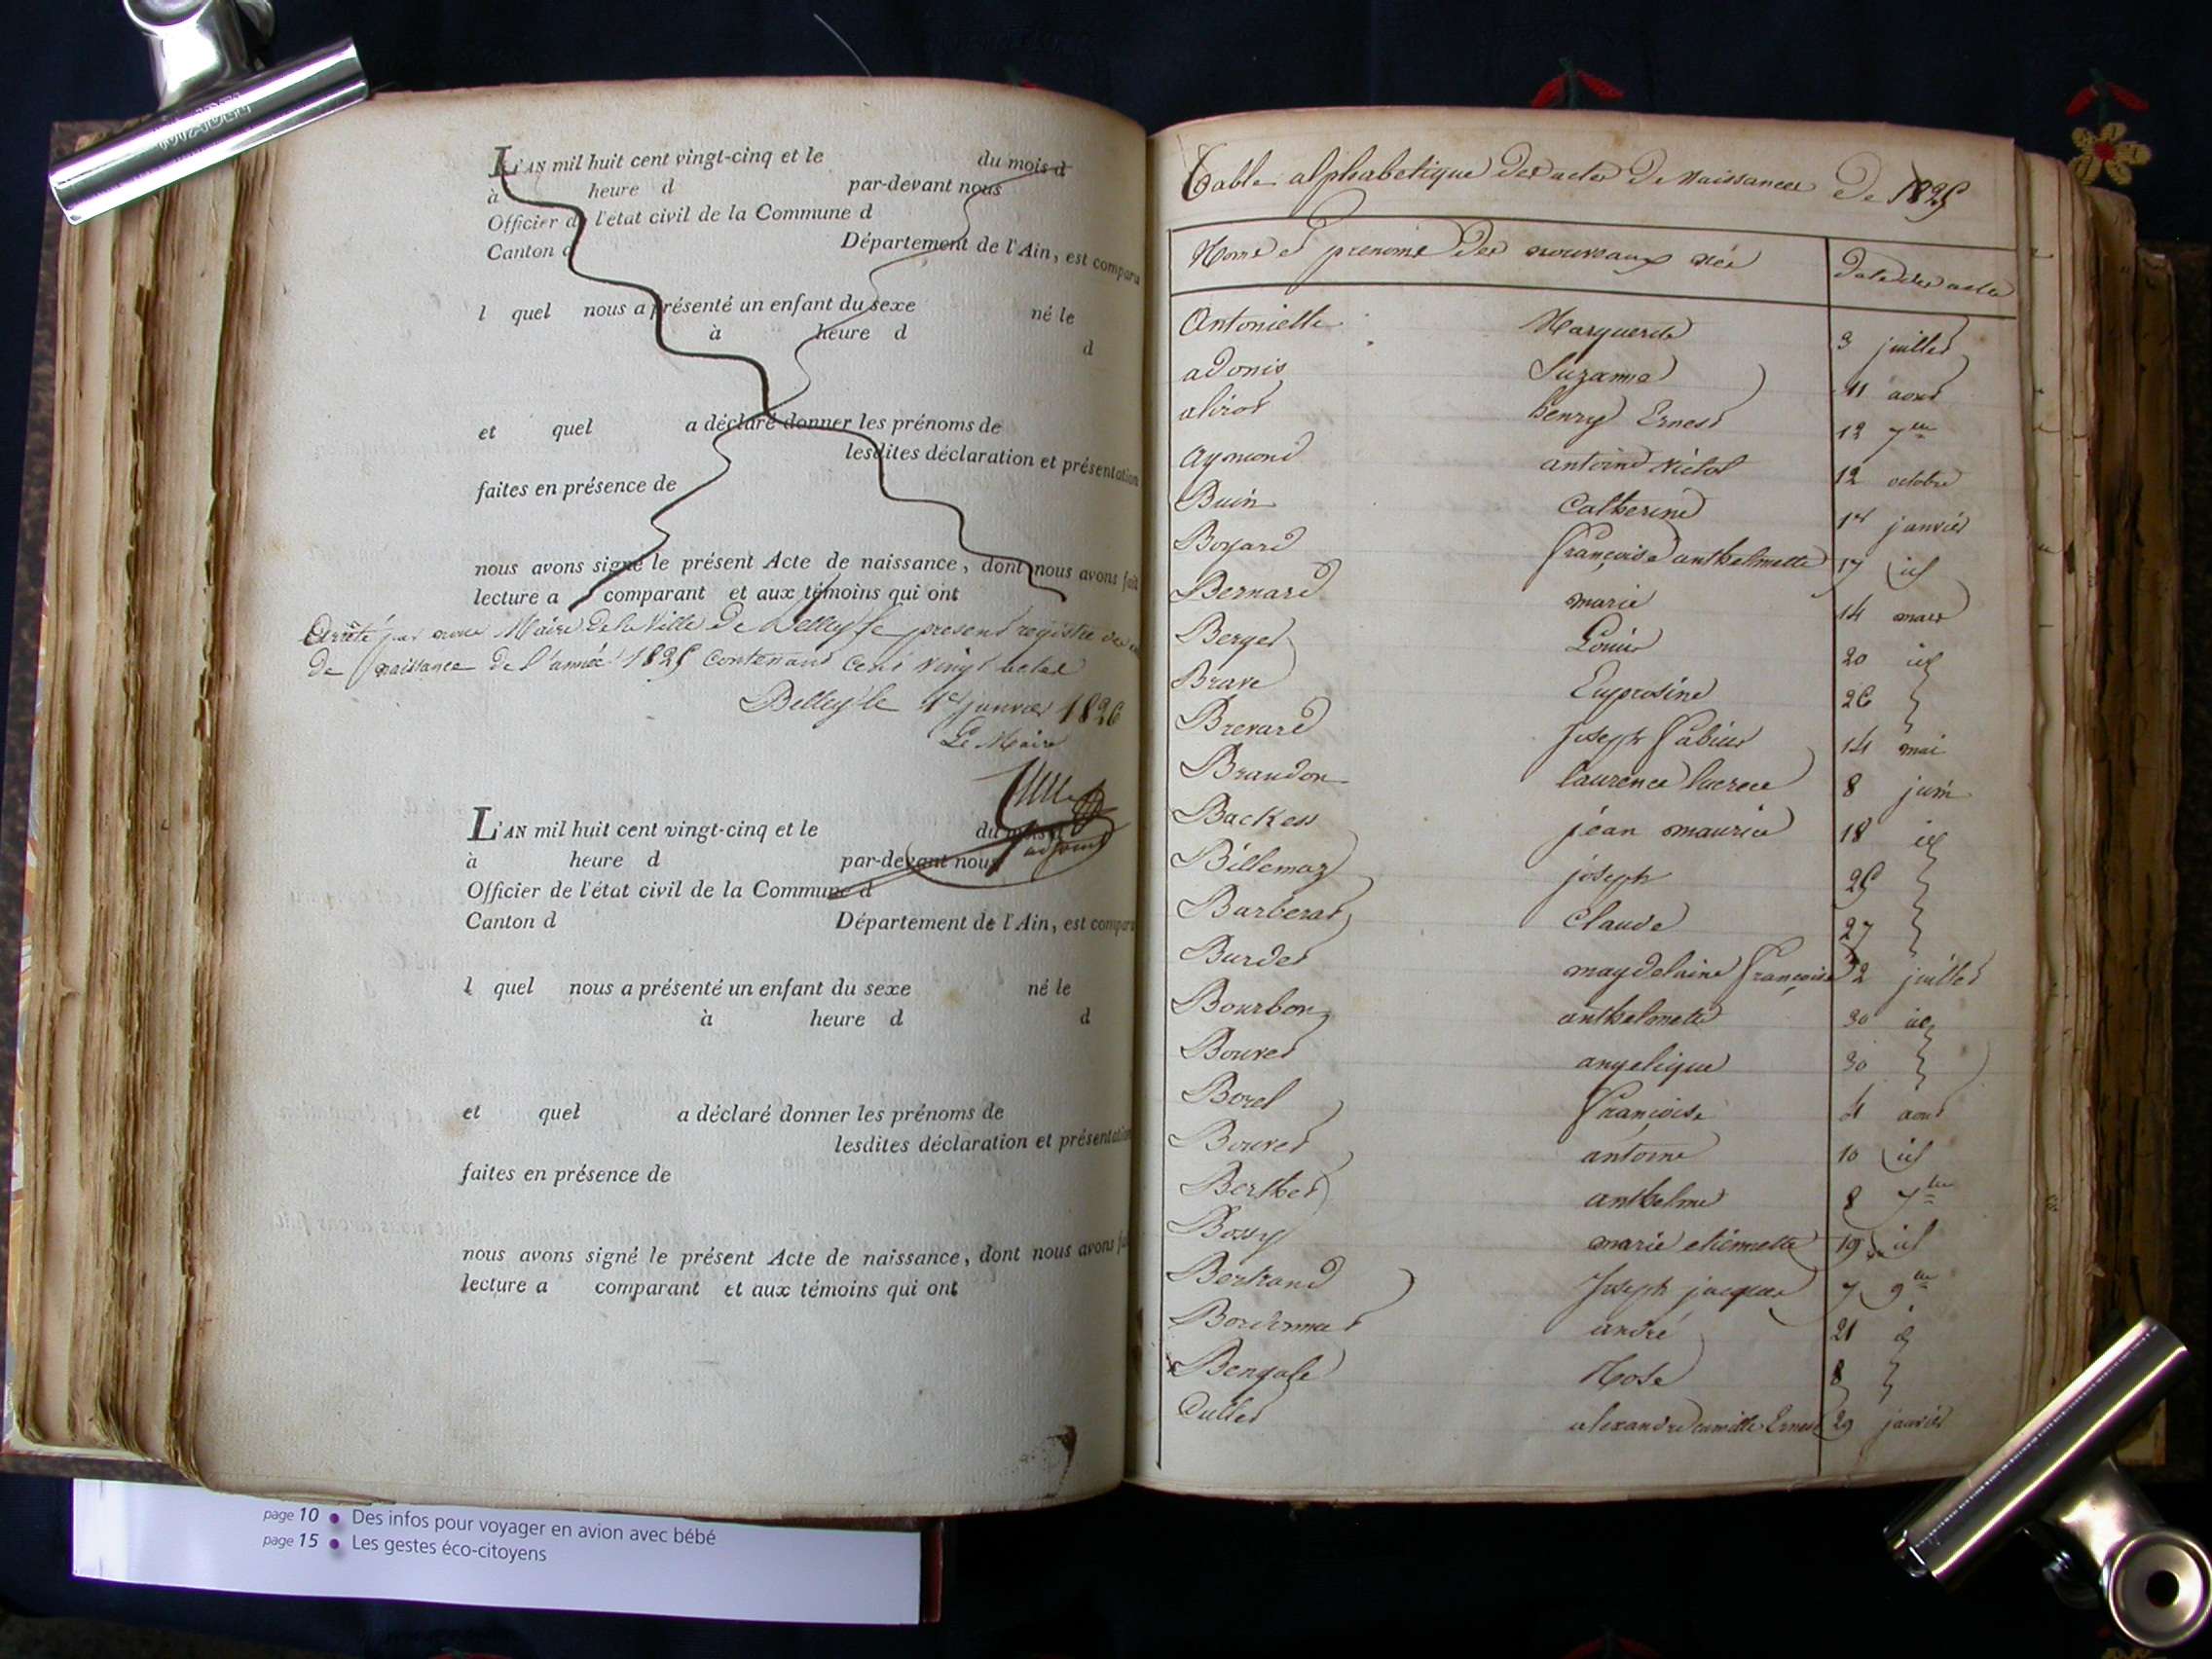 L'AN mil huit cent vingt-cinq et le du mois d
à heure d par-devant nous
Officier de l'état civil de la Commune d
Canton d Département de l'Ain, est comparu
l quel nous a présenté un enfant du sexe né le
à heure d d
et quel a déclaré donner les prénoms de
lesdites déclaration et présentation
faites en présence de
nous avons signé le présent Acte de naissance, dont nous avons fait
lecture a comparant et aux témoins qui ont
Arrêté par nous Maire de la Ville de Belley le present registre
de naissance de l'année 1825 contenant cent vingt actes
Belley le 1er janvier 1826
Le Maire
adjoint
L'AN mil huit cent vingt-cinq et le du mois d
à heure d par-devant nous
Officier de l'état civil de la Commune d
Canton d Département de l'Ain, est comparu
l quel nous a présenté un enfant du sexe né le
à heure d d
et quel a déclaré donner les prénoms de
lesdites déclaration et présentation
faites en présence de
nous avons signé le présent Acte de naissance, dont nous avons fait
lecture a comparant et aux témoins qui ont
page 10 • Des infos pour voyager en avion avec bébé
page 15 • Les gestes éco-citoyens
Table alphabetique des actes de Naissances de 1825
Noms et prenoms des nouveaux nés Date des actes
Antoniette Marguerite 3 juillet
adonis Suzanne 11 aout
alirot henry Ernest 12 7bre
Aymond antoine victor 12 octobre
Buin Catherine 1er janvier
Boyard françoise anthelmette 17 id
Bernard marie 14 mars
Berget Louis 20 id
Brave Euprosine 26
Brevard Joseph fabius 14 mai
Braudon laurence lucrece 8 juin
Backess jean maurice 18 id
Billemaz joseph 25
Barberat Claude 27
Burdet magdelaine françoise 2 juillet
Bourbon anthelmette 30 id
Bouvet angelique 30
Borel françoise 4 aout
Bouvet antoine 10 id
Berthet anthelme 8 7bre
Bossy marie etiennette 19 id
Bertrand Joseph jacques 7 9bre
Bordonnet andré 21 id
Bengale Rose 8
Cullet alexandre camille Ernest 29 janvier